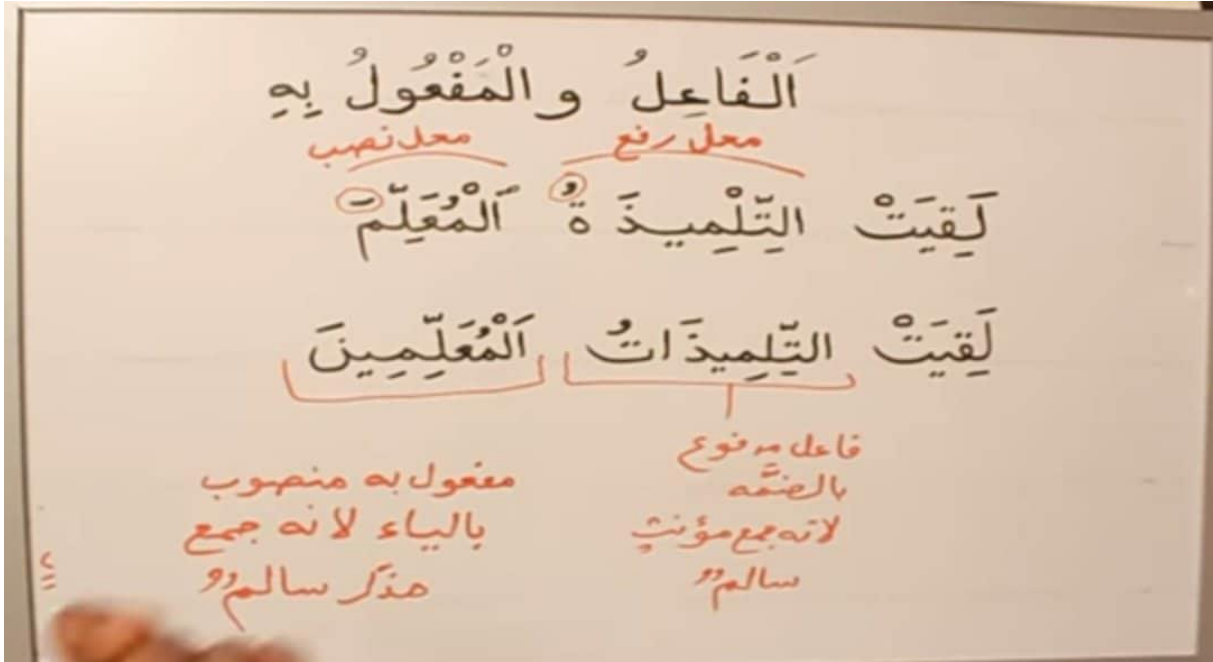 اَلْفَاعِلُ و الْمَفْعُولُ بِهِ
محل رفع محل نصب
لَقِيَتْ التِّلْمِيذَةُ اَلْمُعَلِّمَ
لَقِيَتْ التِّلمِيذَاتُ اَلْمُعَلِّمِينَ
فاعل مرفوع
بالضمَّه
لانه جمع مؤنث
سالمٌ
مفعول به منصوب
بالياء لانه جمع
مذكر سالمٌ